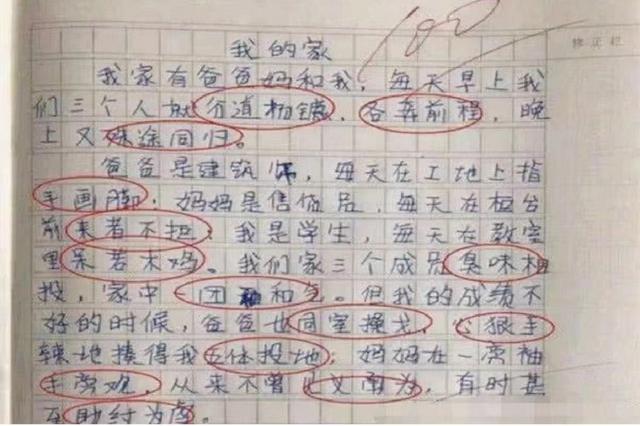 100
修正栏
我的家
我家有爸爸妈和我，每天早上我
们三个人就分道杨镳、各奔前程，晚
上又殊途同归。
爸爸是建筑师，每天在工地上指
手画脚；妈妈是售货员，每天在柜台
前来者不拒；我是学生，每天在教室
里呆若木鸡。我们家三个成员臭味相
投，家中一团和气。但我的成绩不
好的时候，爸爸也同室操戈，心狠手
辣地揍得我五体投地；妈妈在一旁袖
手旁观，从来不曾见义勇为，有时甚
至助纣为虐。